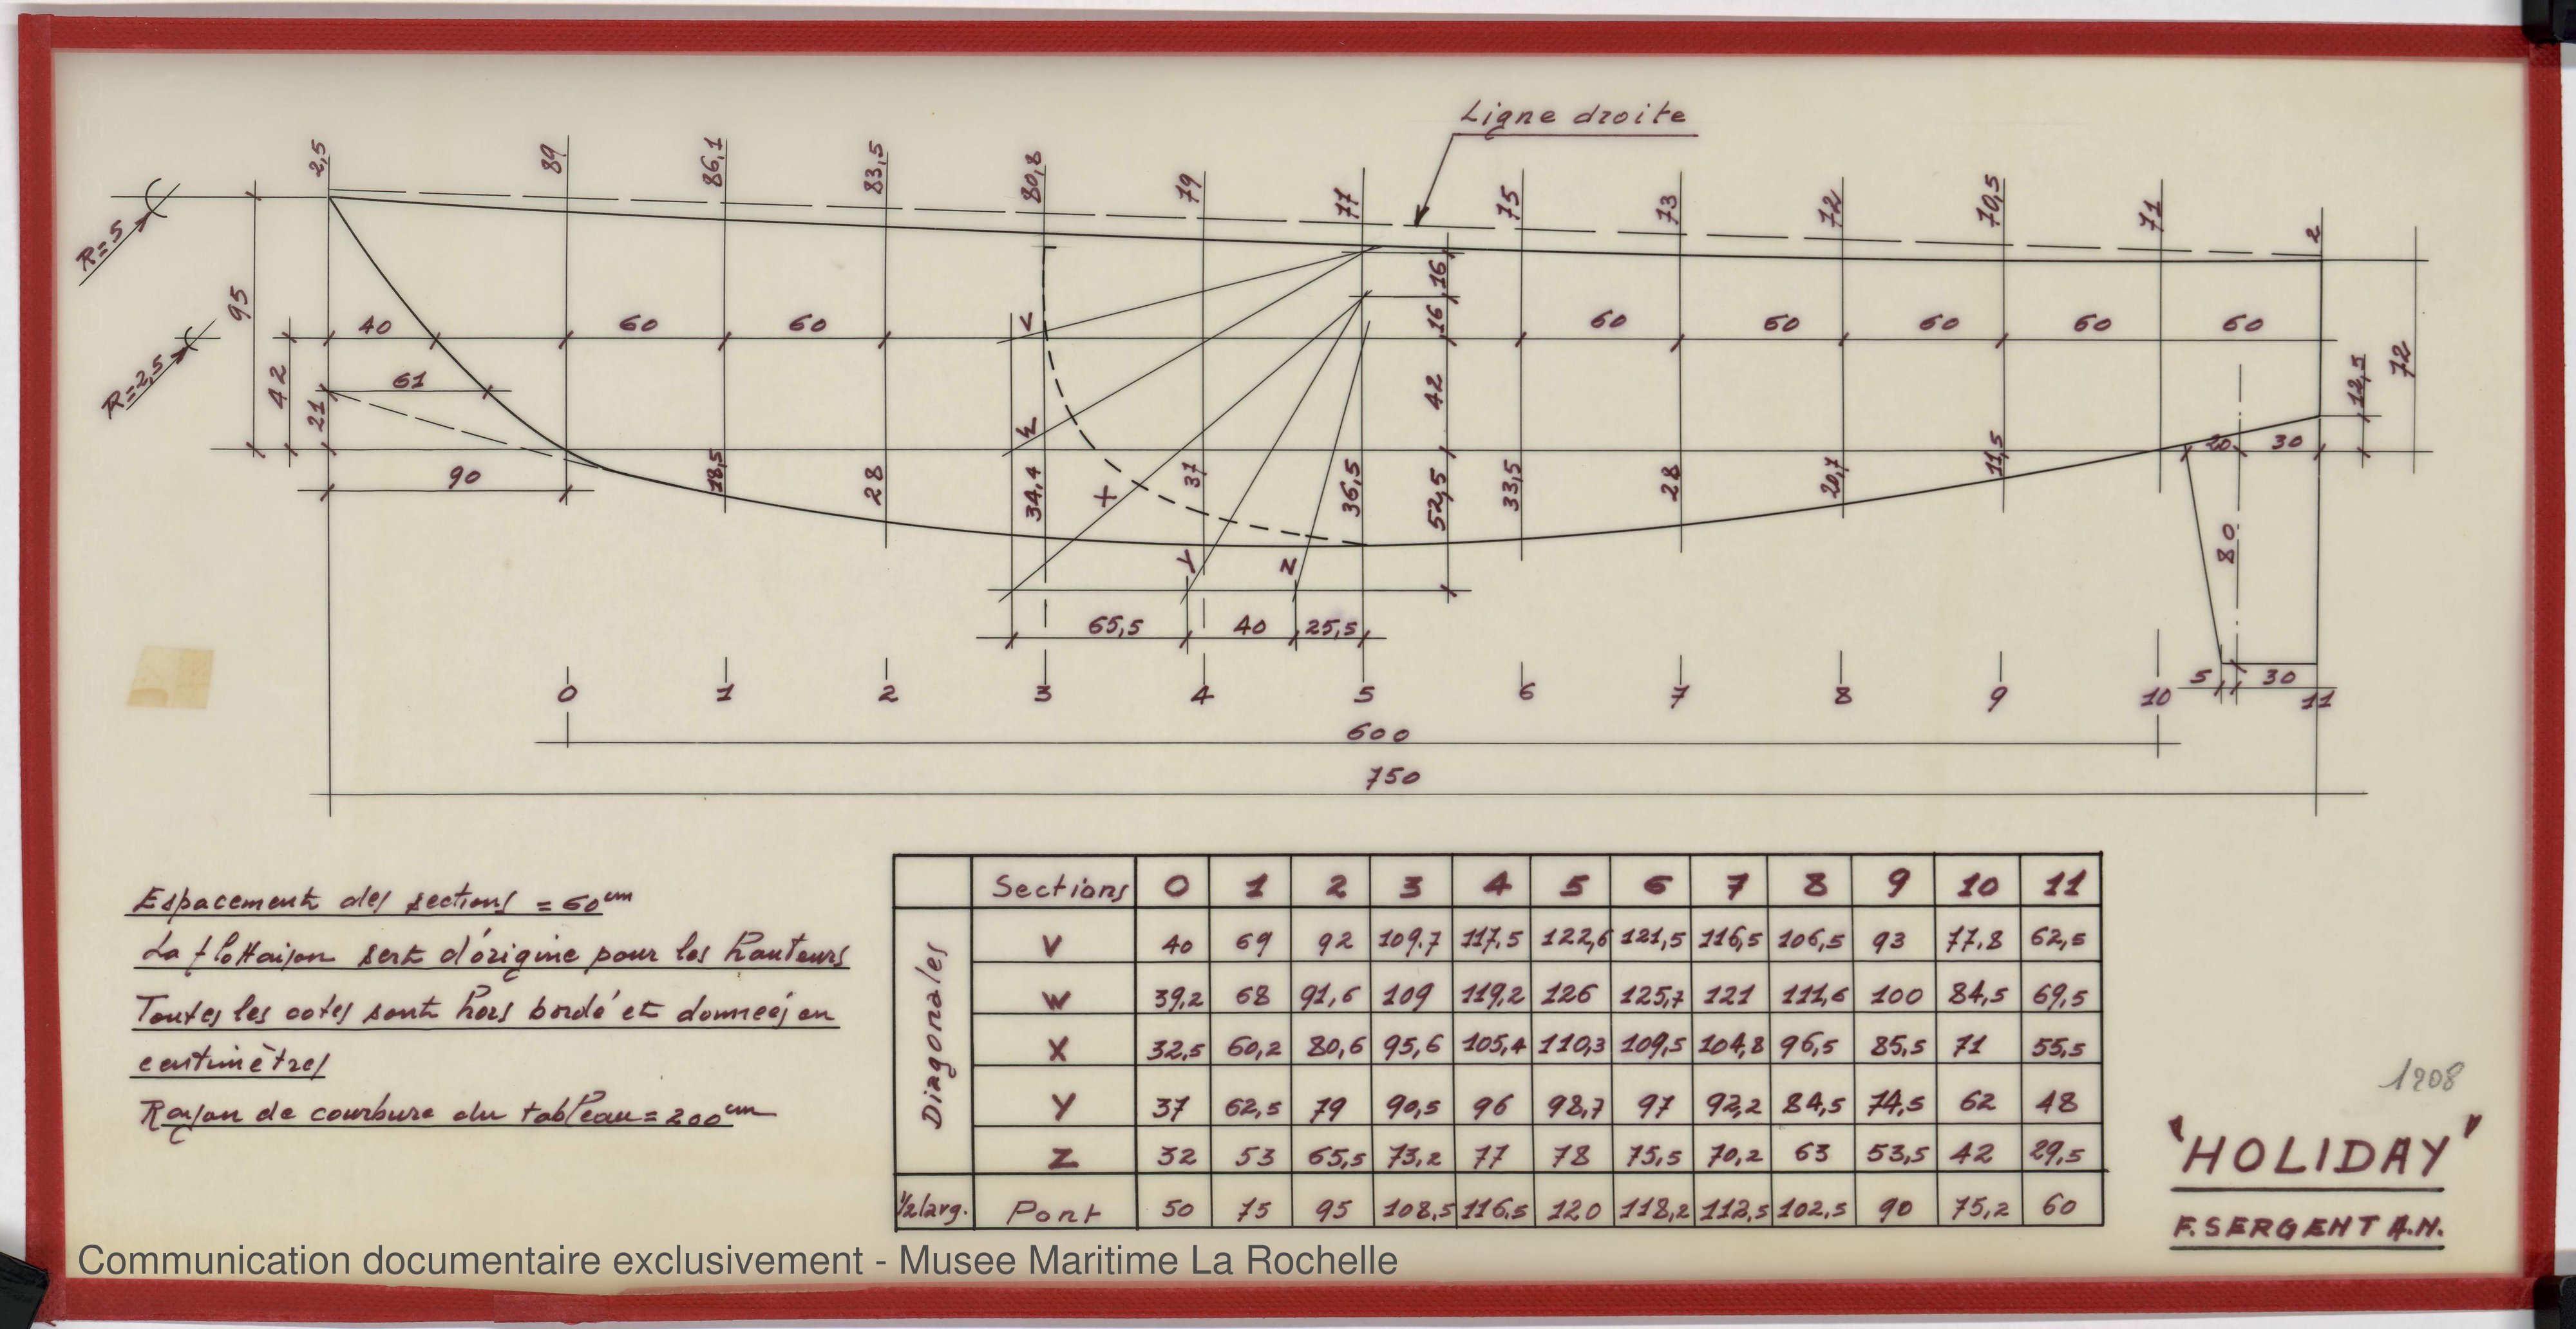 Ligne droite
2,5 89 86,1 83,5 80,8 79 77 75 73 72 70,5 71 2
R=5
R=2,5
95 42 21
40 60 60 60 60 60 60 60
61
90
V W X Y Z
16 16 42 52,5
12,5 72
18,5 28 34,4 37 36,5 33,5 28 20,7 11,5
20 30
80
65,5 40 25,5
5 30
0 1 2 3 4 5 6 7 8 9 10 11
600
750
Espacement des sections = 60cm
La flottaison sert d'origine pour les hauteurs
Toutes les cotes sont hors bordé et données en
centimètres
Rayon de courbure du tableau = 200cm
Sections 0 1 2 3 4 5 6 7 8 9 10 11
Diagonales
V 40 69 92 109.7 117.5 122,6 121,5 116,5 106,5 93 77.8 62,5
W 39,2 68 91,6 109 119,2 126 125,7 121 111,6 100 84,5 69,5
X 32,5 60,2 80,6 95,6 105,4 110,3 109,5 104,8 96,5 85,5 71 55,5
Y 37 62,5 79 90,5 96 98,7 97 92,2 84,5 74,5 62 48
Z 32 53 65,5 73,2 77 78 75,5 70,2 63 53,5 42 29,5
1/2 larg. Pont 50 75 95 108,5 116,5 120 118,2 112,5 102,5 90 75,2 60
1208
"HOLIDAY"
F. SERGENT A.N.
Communication documentaire exclusivement - Musee Maritime La Rochelle